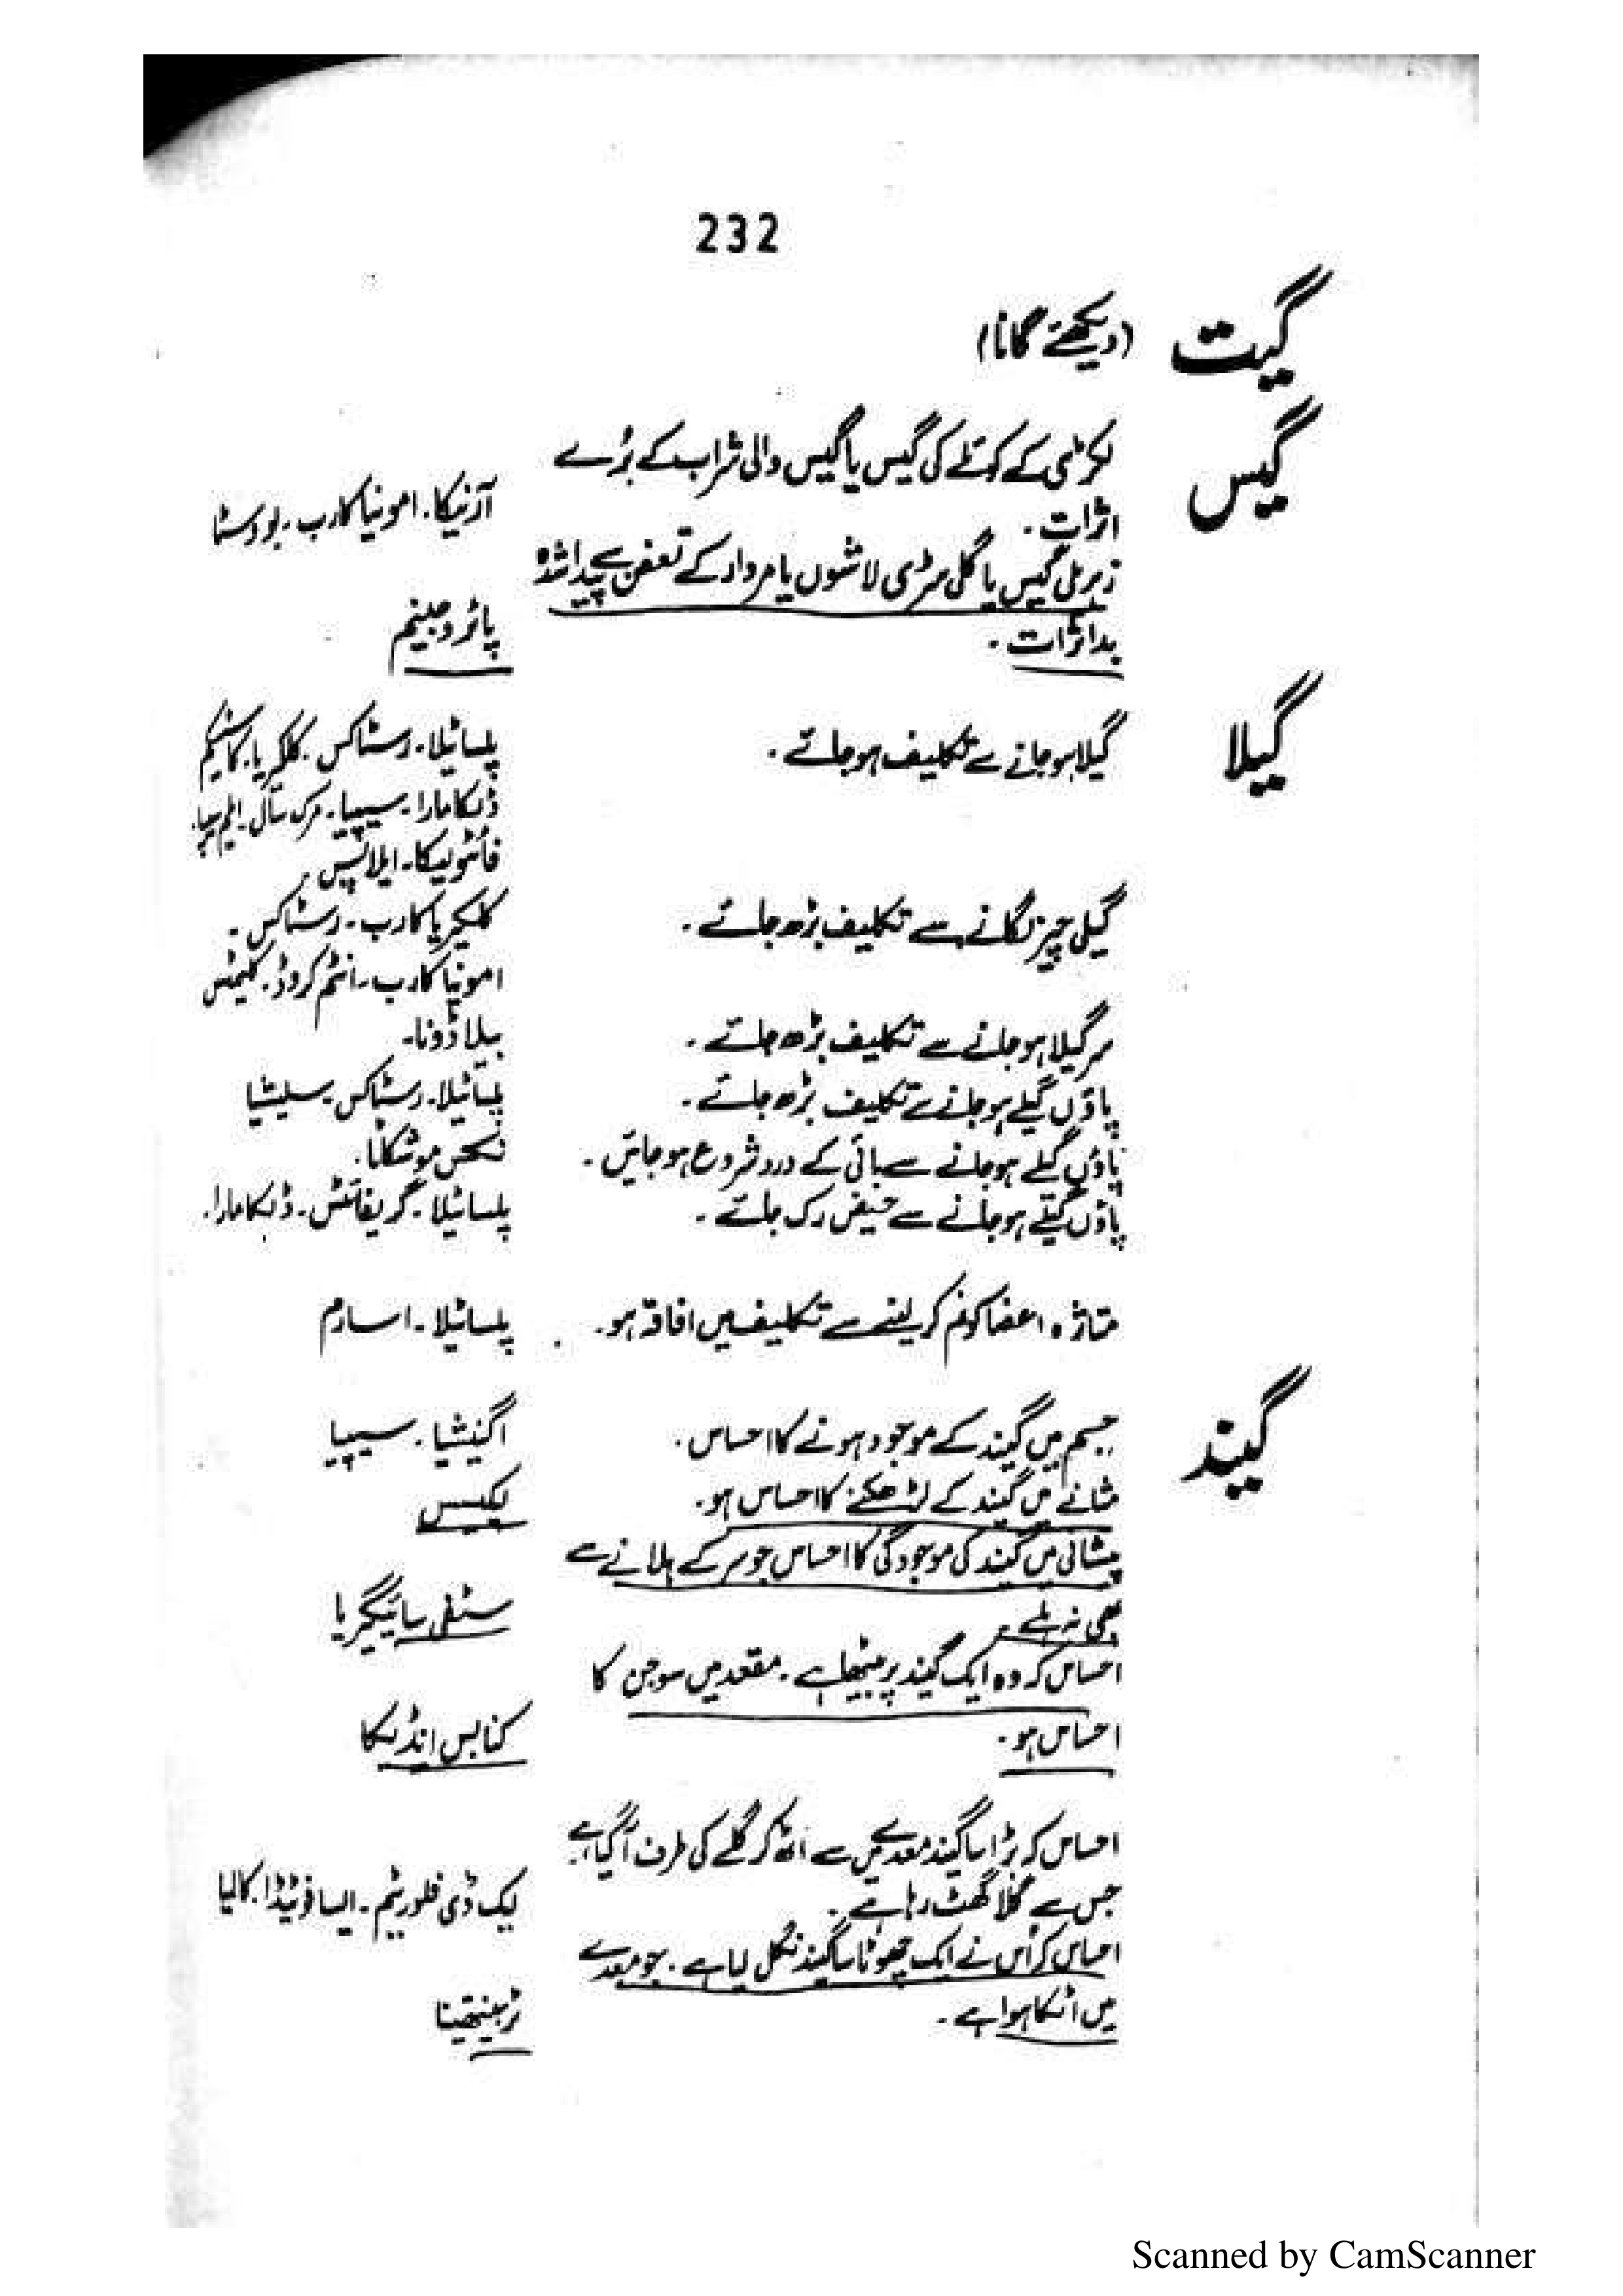 232
گیت (دیکھئے گانا)
گیس
لکڑی کے کوئلے کی گیس یا گیس والی شراب کے بُرے
اثرات۔ آرنیکا۔ امونیا کارب۔ بووسٹا
زہریلی گیس یا گلی سڑی لاشوں یا مردار کے تعفن سے پیدا شدہ
بداثرات۔ پائروجینم
گیلا
گیلا ہوجانے سے تکلیف ہوجائے۔ پلساٹیلا۔ رسٹاکس۔ کلکریا۔ کاسٹیکم
ڈلکامارا۔ سیپیا۔ مرک سال۔ ایلم سیپا۔
فائٹولیکا۔ ایلاپس۔
گیلی چیز لگانے سے تکلیف بڑھ جائے۔ کلکیریا کارب۔ رسٹاکس۔
امونیا کارب۔ انٹم کروڈ۔ کلیمٹس
سر گیلا ہوجانے سے تکلیف بڑھ جائے۔ بیلاڈونا۔
پاؤں گیلے ہوجانے سے تکلیف بڑھ جائے۔ پلساٹیلا۔ رسٹاکس۔ سلیشیا
پاؤں گیلے ہوجانے سے بائی کے درد شروع ہوجائیں۔ نکس موشکاٹا۔
پاؤں گیلے ہوجانے سے حیض رک جائے۔ پلساٹیلا۔ گریفائٹس۔ ڈلکامارا۔
متاثرہ اعضا کو نم کرلینے سے تکلیف میں افاقہ ہو۔ پلساٹیلا۔ اسارم
گیند
جسم میں گیند کے موجود ہونے کا احساس۔ اگنیشیا۔ سیپیا
مثانے میں گیند کے لڑھکنے کا احساس ہو۔ لیکیسس
پیشانی میں گیند کی موجودگی کا احساس جو سر کے ہلانے سے
بھی نہ ہلے۔ سٹفی سائیگریا
احساس کہ وہ ایک گیند پر بیٹھا ہے۔ مقعد میں سوجن کا
احساس ہو۔ کنابس انڈیکا
احساس کہ بڑا سا گیند معدے میں سے اٹھ کر گلے کی طرف آگیا ہے
جس سے گلا گھٹ رہا ہے۔ لیک ڈی فلوریٹم۔ ایسافوٹیڈا۔ کالمیا
احساس کہ اُس نے ایک چھوٹا سا گیند نگل لیا ہے۔ جو معدے
میں اٹکا ہوا ہے۔ ٹربینتھینا
Scanned by CamScanner